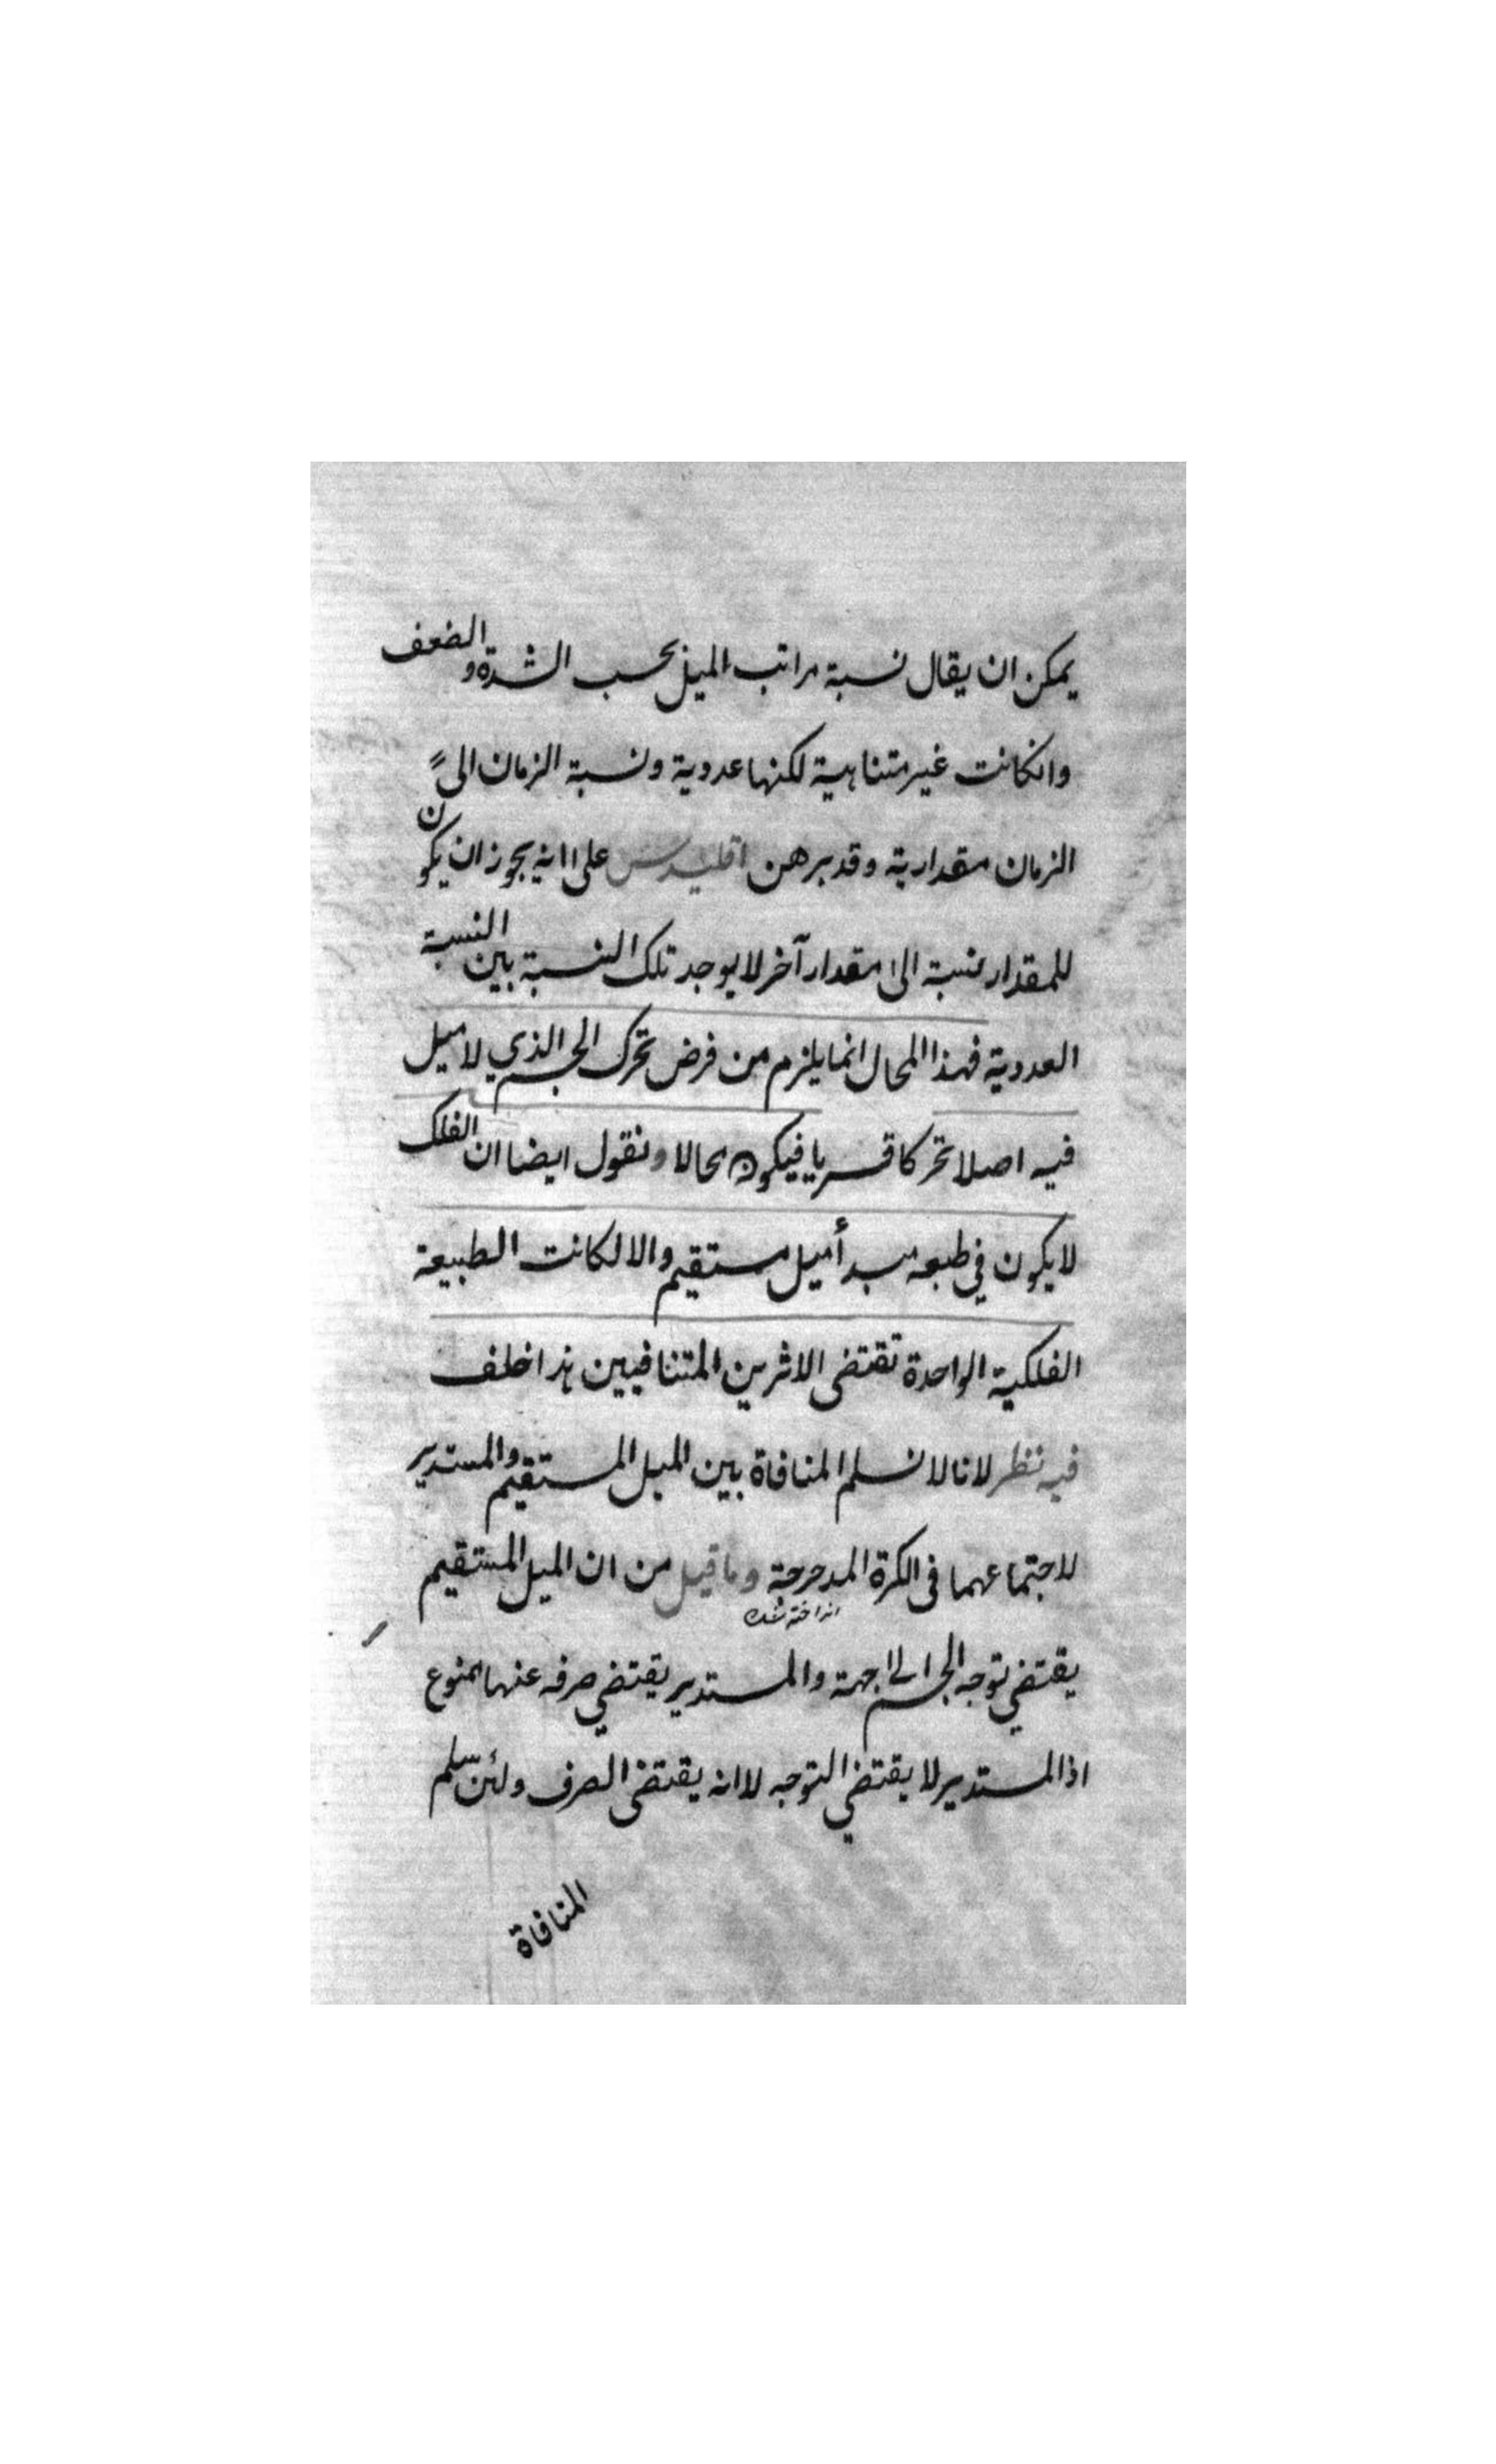 يمكن ان يقال نسبة مراتب الميل بحسب الشدة والضعف
وانكانت غير متناهية لكنها عددية ونسبة الزمان الى
الزمان مقدارية وقد برهن اقليدس على انه يجوز ان يكون
للمقدار نسبة الى مقدار آخر لا يوجد تلك النسبة بين النسبة
العددية فهذا المحال انما يلزم من فرض تحرك الجسم الذي لا ميل
فيه اصلا تحركا قسريا فيكون محالا ونقول ايضا ان الفلك
لا يكون في طبعه مبدأ ميل مستقيم والا لكانت الطبيعة
الفلكية الواحدة تقتضى الاثرين المتنافيين هذا خلف
فيه نظر لانا لا نسلم المنافاة بين الميل المستقيم والمستدير
لاجتماعهما فى الكرة المدحرجة وما قيل من ان الميل المستقيم
انداخته شده
يقتضي توجه الجسم الى جهة والمستدير يقتضي صرفه عنها ممنوع
اذ المستدير لا يقتضي التوجه لا انه يقتضى الصرف ولئن سلم
المنافاة